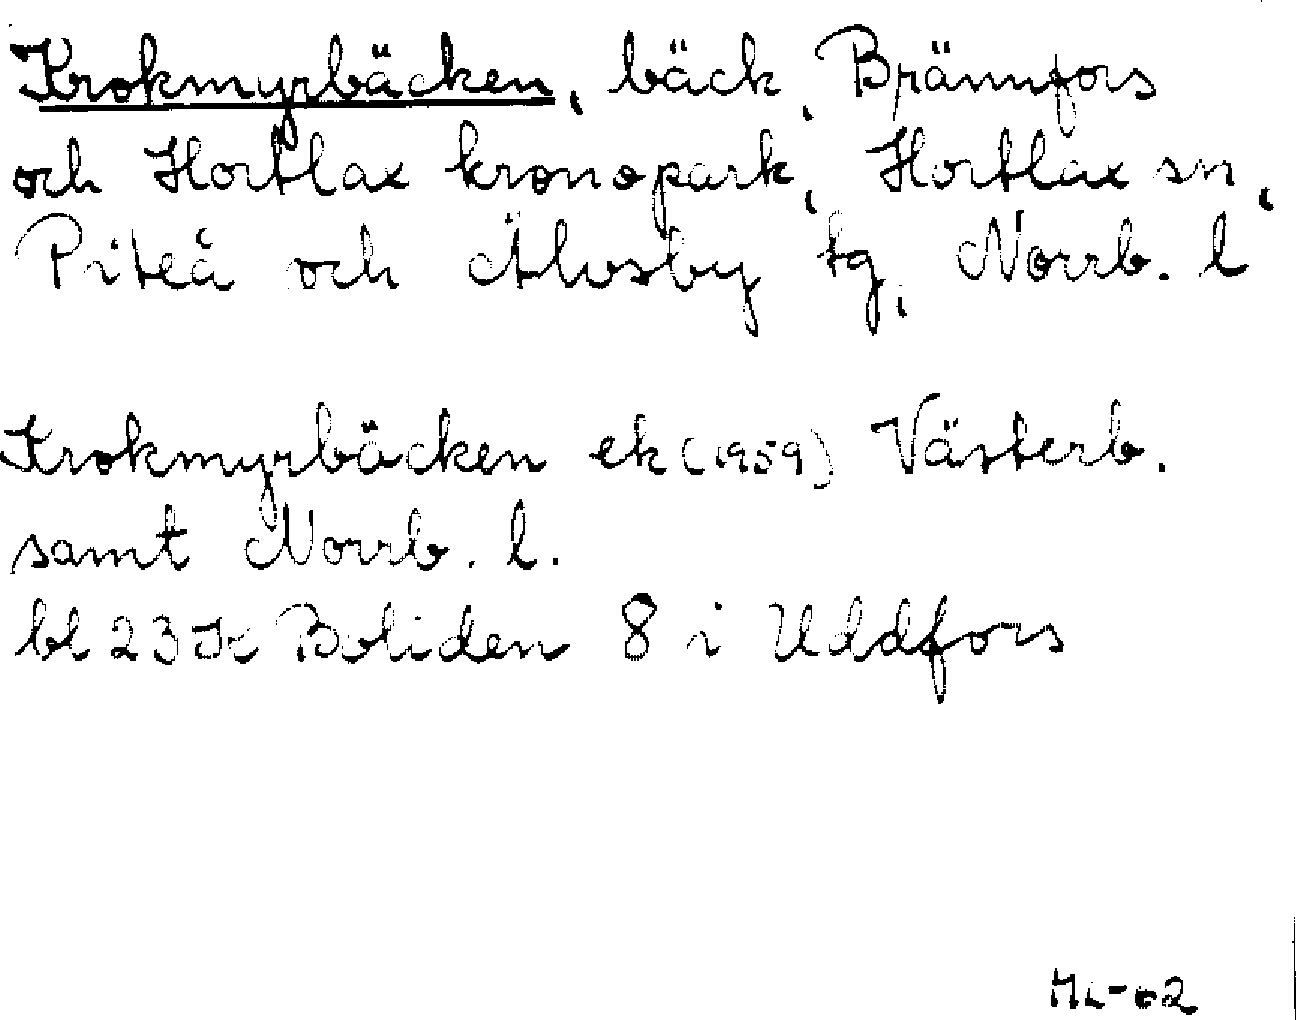 Krokmyrbäcken, bäck, Brännfors
och Hortlax kronopark, Hortlax sn,
Piteå och Älvsby tg, Norrb. l
Krokmyrbäcken ek (1959) Västerb.
samt Norrb. l.
bl 23 K Boliden 8 i Uddfors